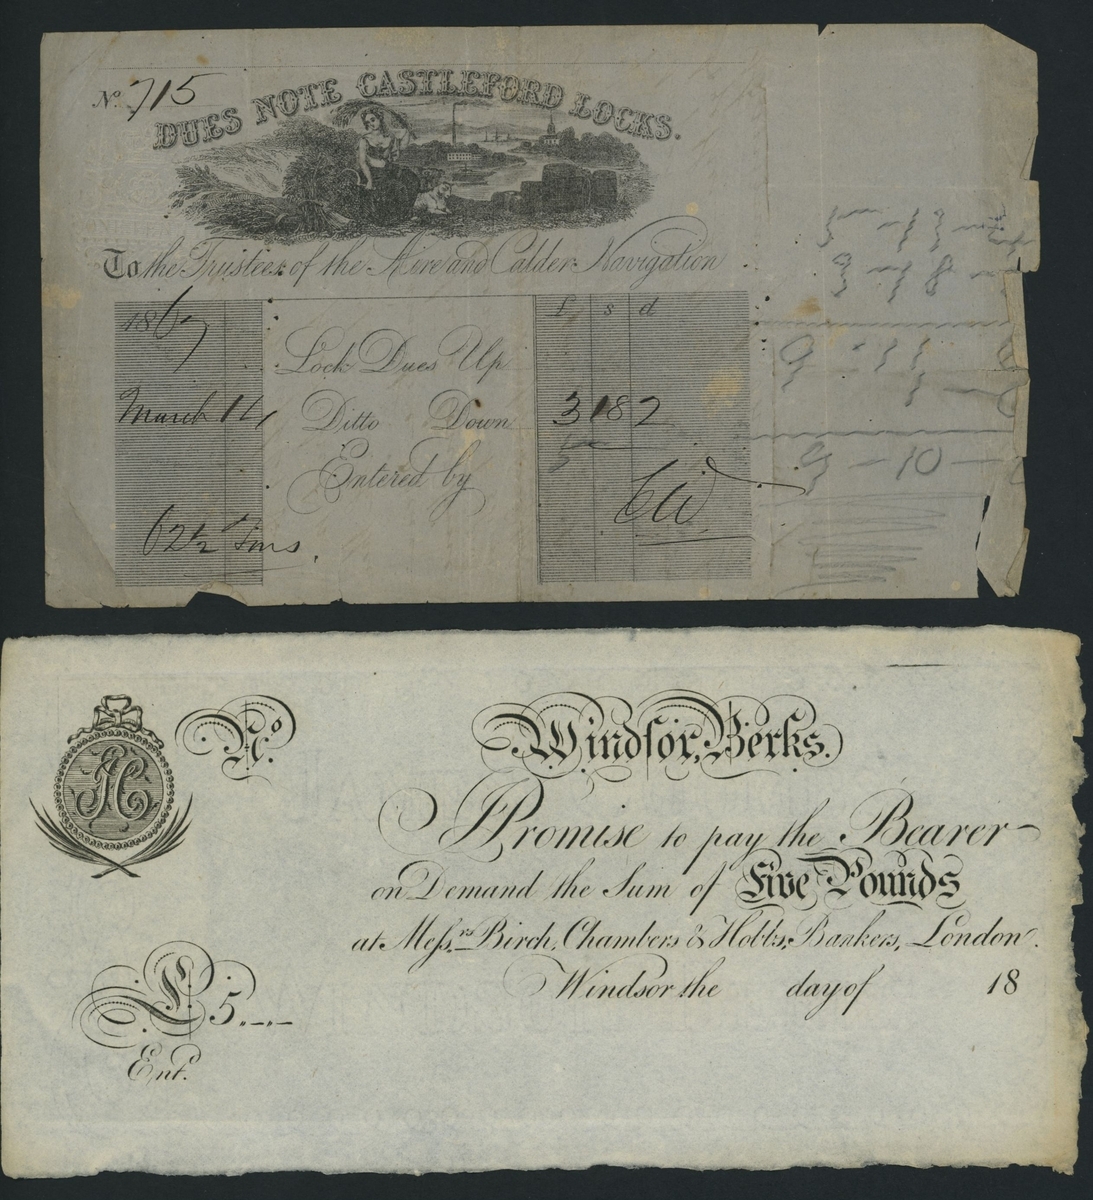 No. 715
DUES NOTE CASTLEFORD LOCKS.
To the Trustees of the Aire and Calder Navigation
1867
£ s d
Lock Dues Up
March 14 Ditto Down 3 18 2
Entered by
62½ Tons.
CW
No.
Windsor, Berks.
I Promise to pay the Bearer
on Demand the Sum of Five Pounds
at Messrs. Birch, Chambers & Hobbs, Bankers, London.
Windsor the day of 18
£5
Ent.